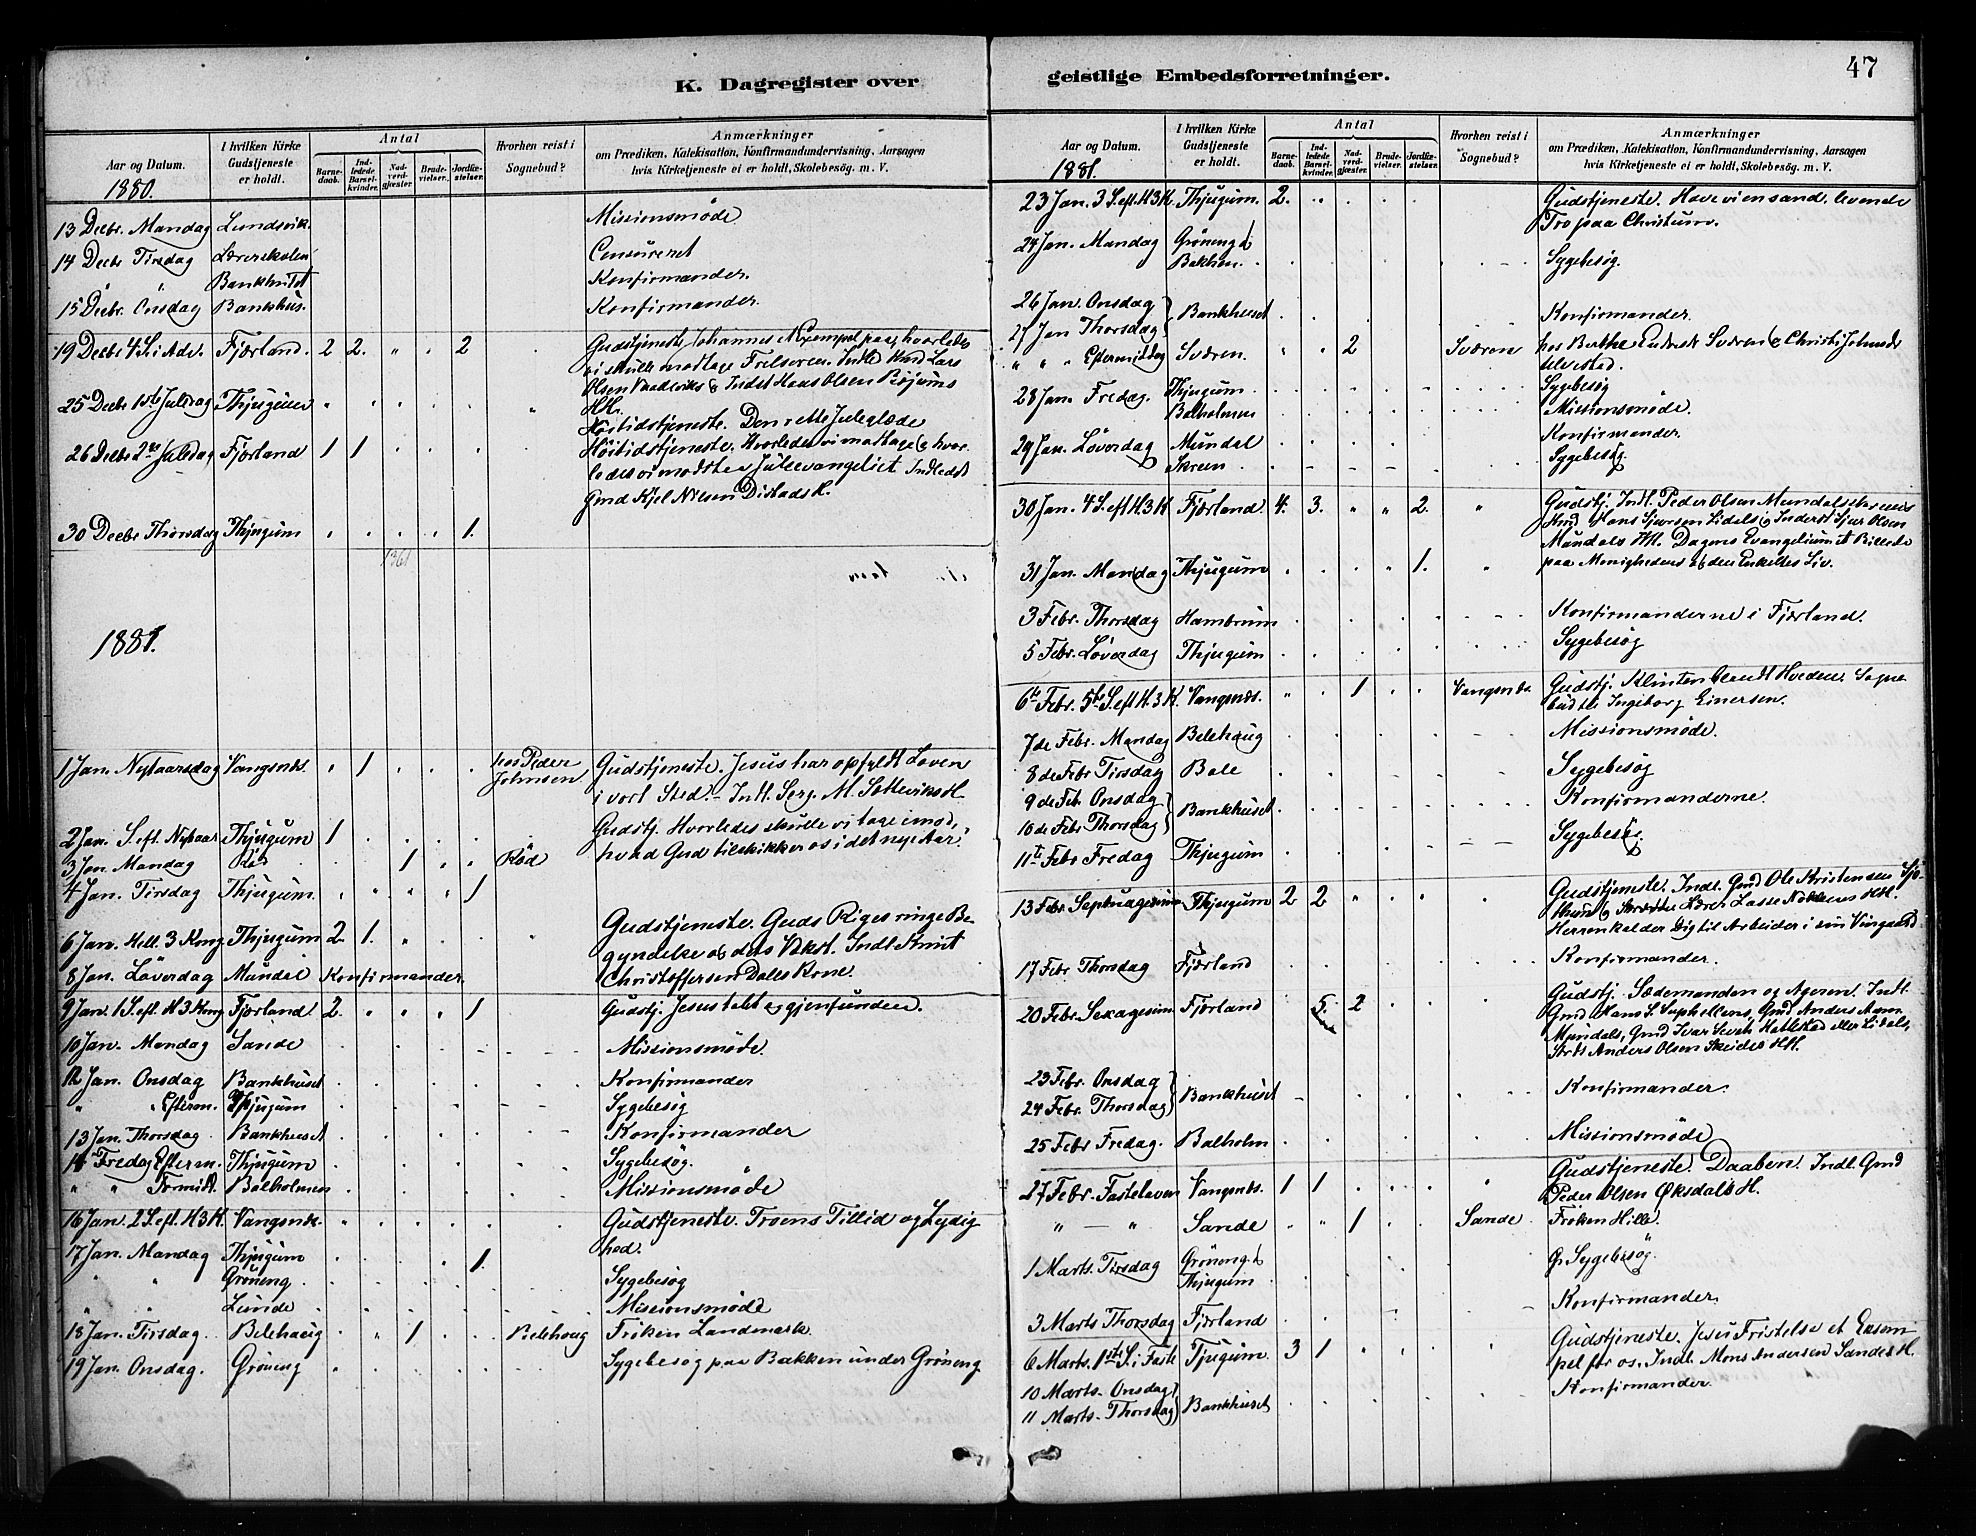 K. Dagregister over
Aar og Datum.
1880.
I hvilken Kirke Gudstjeneste er holdt.
Antal
Barne-daab.
Ind-ledede Barsel-kvinder.
Nad-verd-gjæster.
Brude-vielser.
Jordfæ-stelser.
Hvorhen reist i Sognebud?
Anmærkninger
om Prædiken, Katekisation, Konfirmandundervisning, Aarsagen
hvis Kirketjeneste ei er holdt, Skolebesög. m. V.
13 Decbr. Mandag Lundsvik. Missionsmøde
14 Decbr Tirsdag Lærerskolen Censureret
" " Bankhuset Konfirmander.
15 Decbr. Onsdag Bankhus. Konfirmander.
19 Decbr 4 S. i Adv. Fjærland. 2 2. " . 2 Gudstjeneste Johannes Exempel paa, hvorledes
vi skulle modtage Frelseren. Indl. Lars
Olsen & Indst Hans Olsen Bøjums
H.H.
25 Decbr 1ste Juledag Thjugum Høitidstjeneste. Den rette Juleglæde
26 Decbr 2den Juledag Fjærland 1 1 Høitidstjeneste. Hvorledes vi modtage & hvor
ledes vi modstaa Juleevangeliet Indledet
Gmd Kjel Nilsen Distads H.
30 Decbr Thorsdag Thjugum 1.
1361
1881.
1 Jan. Nytaarsdag Vangsnes. 1 hos Peder Johnsen Gudstjeneste. Jesus har opfyldt Loven
i vort Sted. - Indl. Serg. M. Sætteviks H.
2 Jan. S. eft. Nytaar Thjugum 1 Gudstj. Hvorledes skulle vi tage imod,
3 Jan. Mandag Rød 1 Rød hvad Gud tilskikker os i det nye Aar.
4 Jan. Tirsdag Thjugum. 1
6 Jan. Hell. 3 Kong. Thjugum 2. 1. Gudstjeneste. Guds Riges ringe Be-
gyndelse og dets Vækst. Indl. Knut
8 Jan. Löverdag Mundal Konfirmander. Christoffersen Dales Kone.
9 Jan. 1 S. eft. H3 Kong Fjærland. 2. 1 Gudstj. Jesus tabt og gjenfunden.
10 Jan. Mandag Sande Missionsmøde.
12 Jan. Onsdag Bankhuset Konfirmander
" " Efterm. Thjugum Sygebesög
13 Jan. Thorsdag. Bankhuset Konfirmander
14 Fredag Efterm. Thjugum Sygebesög.
" " Formidd. Balholmen Missionsmøde
16 Jan. 2 S. eft. H3K. Vangsnes. Gudstjeneste. Troens Tillid og Lydig
hed.
17 Jan. Mandag Thjugum 1.
" " Grøneng Sygebesög
" " Lunde Missionsmøde
18 Jan. Tirsdag. Belehaug 1 Belehaug Frøken Landmark.
19 Jan. Onsdag. Grøneng Sygebesög paa Bakken under Grøneng
geistlige Embedsforretninger.
47
Aar og Datum.
1881.
I hvilken Kirke Gudstjeneste er holdt.
Antal
Barne-daab.
Ind-ledede Barsel-kvinder.
Nad-verd-gjæster.
Brude-vielser.
Jordfæ-stelser.
Hvorhen reist i Sognebud?
Anmærkninger
om Prædiken, Katekisation, Konfirmandundervisning, Aarsagen
hvis Kirketjeneste ei er holdt, Skolebesög. m. V.
23 Jan. 3 S. eft. H3K. Thjugum. 2. Gudstjeneste. Have vi en sand levende
Tro paa Christum.
24 Jan. Mandag Grøneng & Bakken. Sygebesög.
26 Jan. Onsdag
27 Jan Thorsdag Bankhuset Konfirmander.
" " Eftermiddag Sværen. 2 Sværen hos Berthe Sværen & Christi
tilsted.
28 Jan. Fredag. Thjugum Sygebesög
Balholmen Missionsmøde.
29 Jan. Löverdag Mundal Konfirmander.
Skreen Sygebesög.
30 Jan. 4 S. eft H3K Fjærland. 4. 3. " " 2. Gudstj. Indl. Peder Olsen Mundals
Gmd Hans Sjursen Lidals & Inderst Sjur Olsen
Mundals HH. Dagens Evangelium et Billede
paa Menighedens & den Enkeltes Liv.
31 Jan. Mandag Thjugum 1.
3 Febr. Thorsdag Hambrum Konfirmanderne i Fjærland.
5 Febr. Löverdag Thjugum Sygebesög
6te Febr. 5te S. eft H.3 K. Vangsnes. 1 Vangsnes Gudstj. Klinten blandt Hveden. Sogne
bud til Ingeborg Einersen.
7de Febr. Mandag Belehaug Missionsmøde.
8de Febr Tirsdag Bale Sygebesög
9de Feb. Onsdag
10de Febr Thorsdag Bankhuset Konfirmanderne.
11te Febr Fredag Thjugum Sygebesög.
13 Febr. Septuagesima Thjugum 2 2 Gudstjeneste. Indl. Gmd Ole Kristensen
& Lærer Lasse HH.
Herren kalder Dig til Arbeider i sin Viingaard.
17 Febr Thorsdag Fjærland Konfirmander.
20 Febr. Sexagesima Fjærland 5. 2 Gudstj. Sædemanden og Ageren. Indl.
Gmd Hans S. Suphellens, Gmd Anders
Mundals, Gmd Ivar eller Lidals,
Anders Olsen Skeides HH.
23 Febr. Onsdag
24 Febr. Thorsdag Bankhuset Konfirmander.
25 Febr Fredag. Balholm Missionsmøde
27 Febr. Fastelaven Vangsnes. 1 1 Gudstjeneste. Daaben. Indl. Gmd
Peder Olsen Øksdals H.
" — " Sande 1 Sande. Frøken Hille.
1 Marts. Tirsdag Grøneng & Thjugum Sygebesög
3 Marts Thorsdag Fjærland Konfirmander.
6 Marts. 1ste S. i Faste Tjugum. 3 1 Gudstjeneste. Jesu Fristelse et Exem
pel for os. Indl. Mons Andersen Sandes H.
10 Marts. Onsdag
11 Marts. Thorsdag Bankhuset Konfirmander.